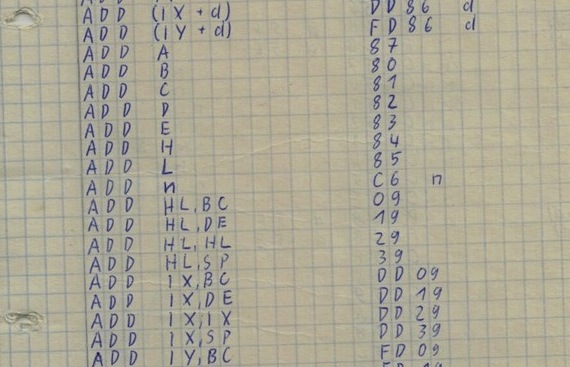 ADD (IX + d) DD 86 d
ADD (IY + d) FD 86 d
ADD A 87
ADD B 80
ADD C 81
ADD D 82
ADD E 83
ADD H 84
ADD L 85
ADD n C6 n
ADD HL,BC 09
ADD HL,DE 19
ADD HL,HL 29
ADD HL,SP 39
ADD IX,BC DD 09
ADD IX,DE DD 19
ADD IX,IX DD 29
ADD IX,SP DD 39
ADD IY,BC FD 09